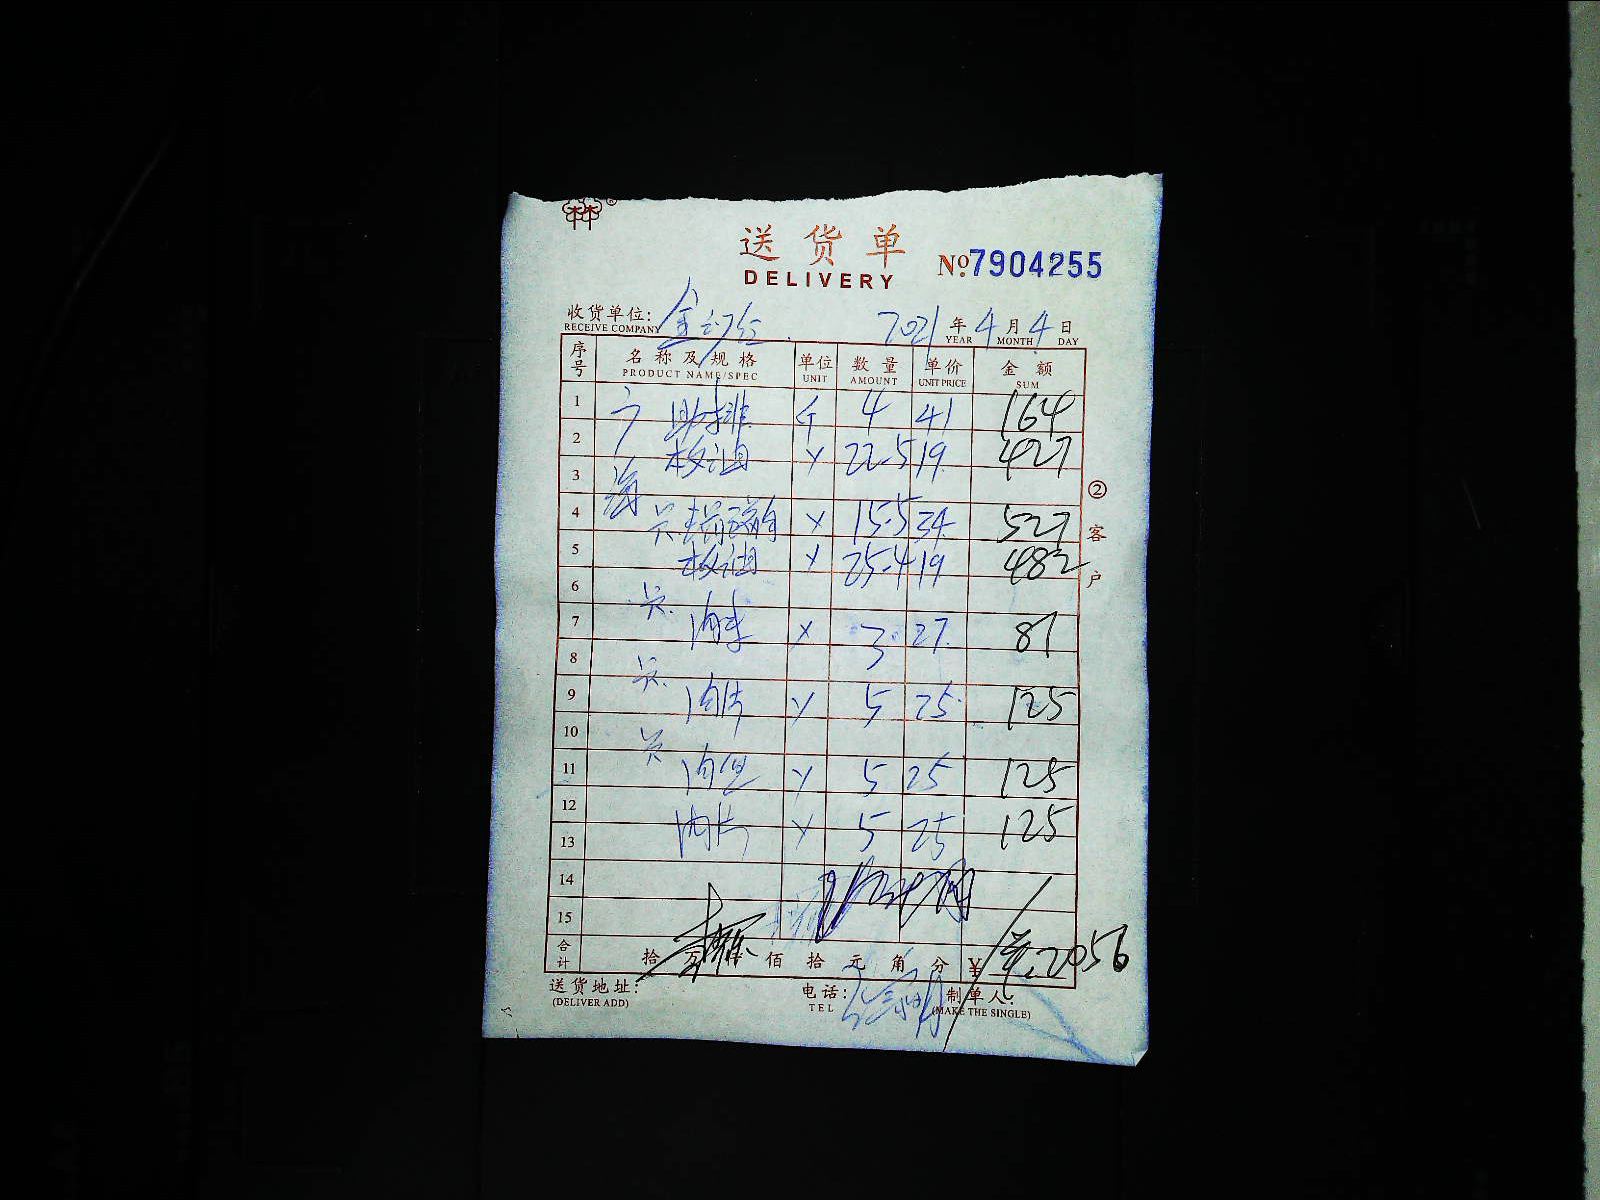 送货单
DELIVERY
No.7904255
收货单位:
RECEIVE COMPANY
2021年4月4日
YEAR MONTH DAY
序号 名称及规格 单位 数量 单价 金额
PRODUCT NAME/SPEC UNIT AMOUNT UNIT PRICE SUM
1 肋排 斤 4 41 164
2 板油 22.5 19 427
3
4 15.5 34 527
5 板油 25.4 19 482
6
7 肉末 3 27 81
8
9 肉片 5 25 125
10
11 肉丝 5 25 125
12 肉片 5 25 125
13
14
15
合计 拾 万 仟 佰 拾 元 角 分 ¥ 2056
②客户
送货地址: 电话: 制单人:
(DELIVER ADD) TEL (MAKE THE SINGLE)